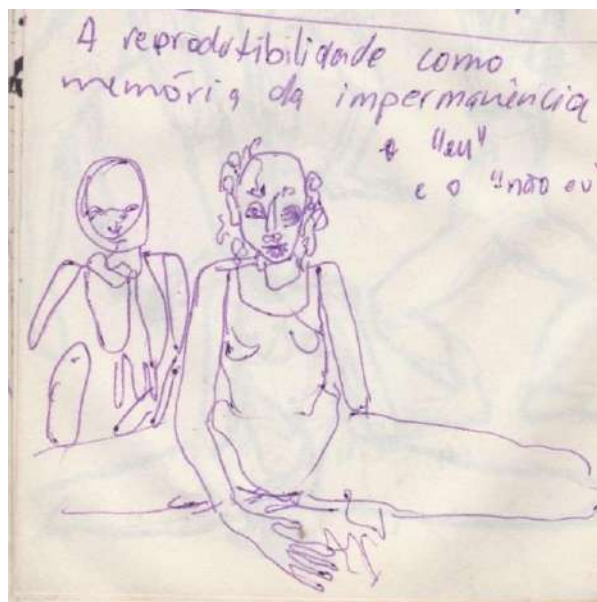 A reprodutibilidade como
memória da impermanência
o "eu"
e o "não eu"